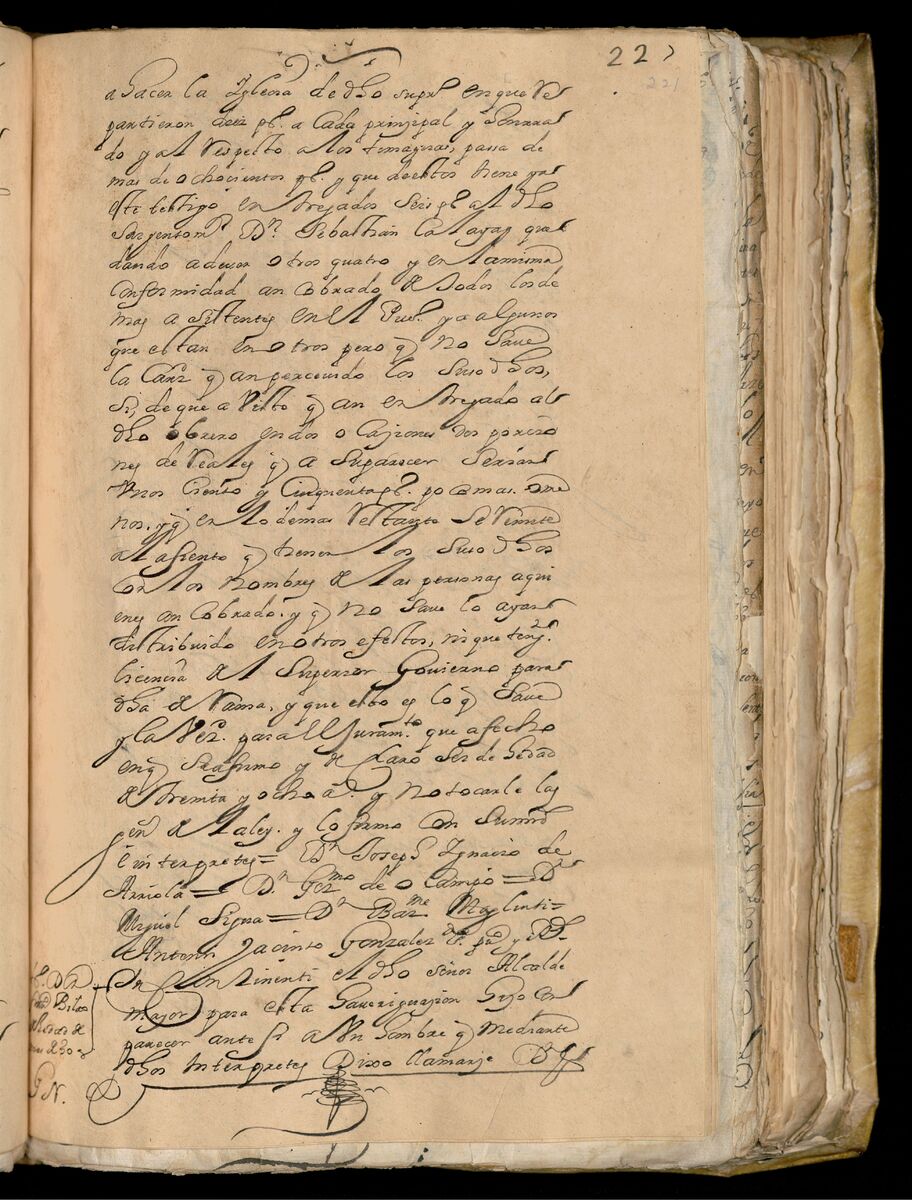 227
221
a hacer la Iglecia de dho supl en que Re
partieron diez ps. a Cada prinsipal y
do y al Respecto a los timaguas, passa de
mas de ochocientos ps. y que de estos tiene ya
este testigo entregados Seis ps al dho
Sargentomr Dn Sebastian Catayay que
dando a dever otros quatro y en la misma
Conformidad an cobrado de todos los de
mas asistentes en el Puel. y a algunos
que estan en otros pero q no Save
la Cantd q an percevido los Suso dhos,
Si, de que a Visto q an entregado al
dho obrero en dos o Cajiones dos porcio
nes de Reales q a Suparecer Serian
Unos Ciento y Cinquenta ps. poco mas. o me
nos, y q en lo demas Restante Se Remite
al asiento q tienen los Suso dhos
Con los nombres de las personas a qui
enes an Cobrado. y q no Save lo ayan
distribuido en otros efectos, ni que tengan
licencia del Superior Govierno para
dha derrama, y que esto es lo q Save
y la Verd. para el Juramto que a fecho
en q Se afirmo y declaro Ser de hedad
de treinta y ocho as. y no tocarle las
gen de la ley. y lo firmo con Sumrd
e interpretes= Dn Joseph Ignacio de
Arriola = Dn Germo de o Campo = Dn
Miguel Signa = Dn Barme
Antonio Jacinto Gonzalez
In Continenti el dho señor Alcalde
mayor para esta haveriguasion hizo Com
parecer ante Si a Un hombre q Mediante
dhos Interpretes Dixo llamarse Dn